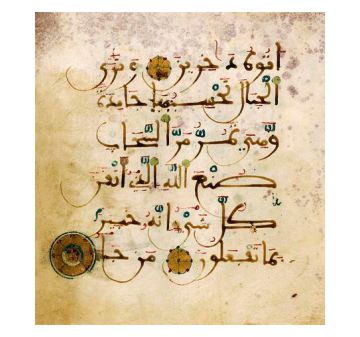 اتوه دخرين وترى
الجبال تحسبها جامدة
وهي تمر مر السحاب
صنع الله الذي اتقن
كل شيء انه خبير
بما تفعلون من جا